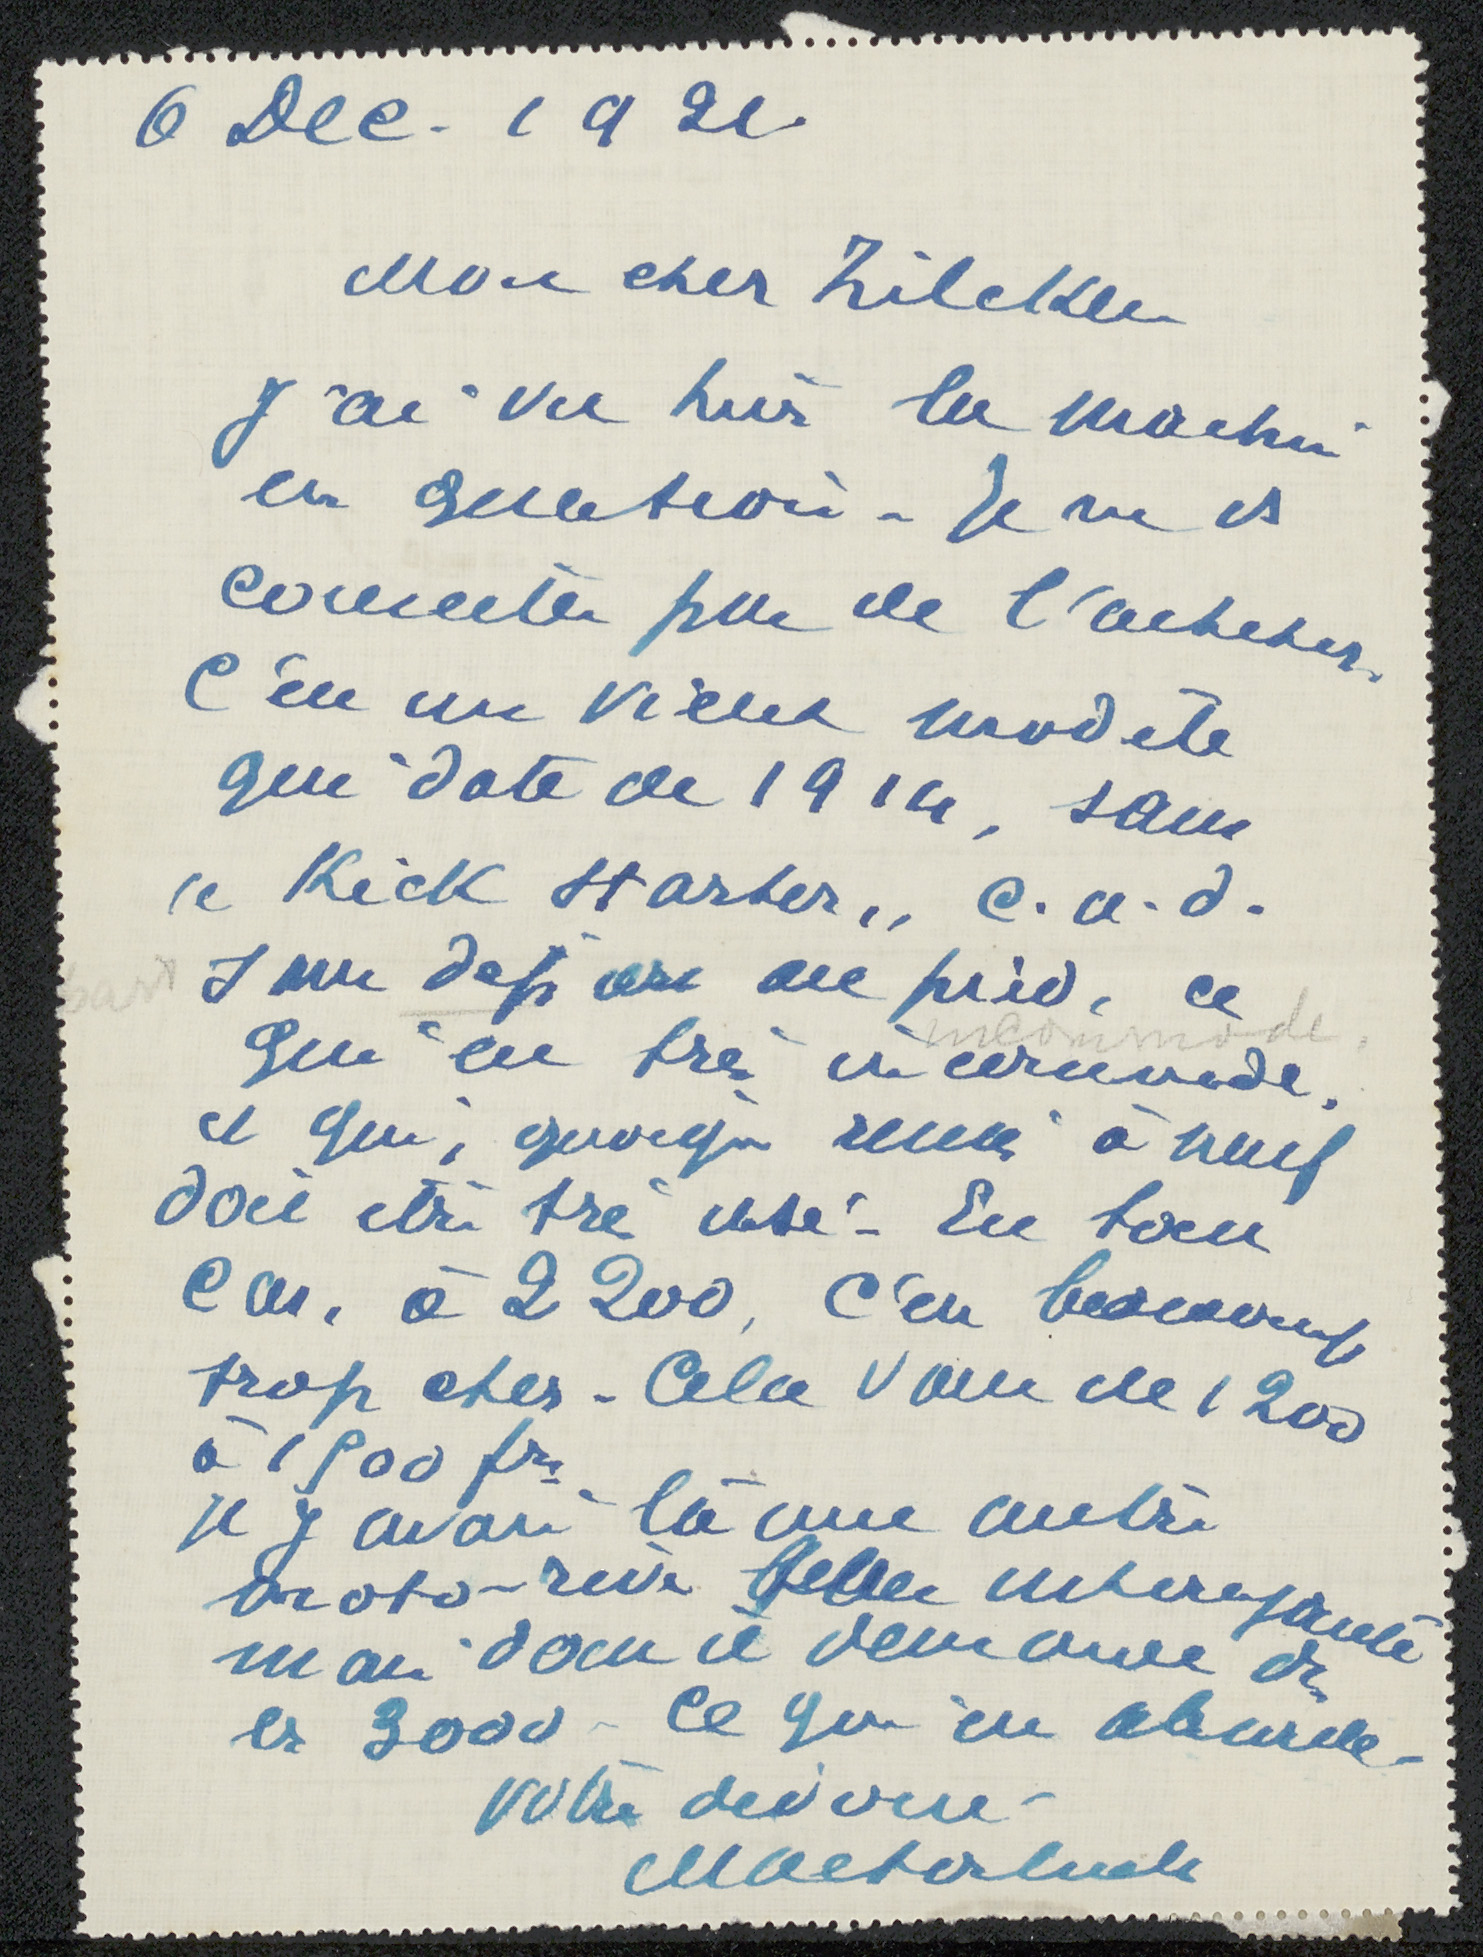 6 Dec. 1921
Mon cher Zilcken
J'ai vu hier la machine
en question - Je ne vs
conseille pas de l'acheter.
C'est un vieux modèle
qui date de 1914, sans
"Kick starter", c.a.d.
sans départ au pied, ce
part
incommode.
qui est très incommode,
et qui, quoique remis à neuf
doit être très usé - En tous
cas, à 2200, c'est beaucoup
trop cher - Cela vaut de 1200
à 1500 frs
Il y avait là une autre
moto-rêve intéressante
mais dont il demande
3000 - Ce qui est absurde -
Votre dévoué
Maeterlinck